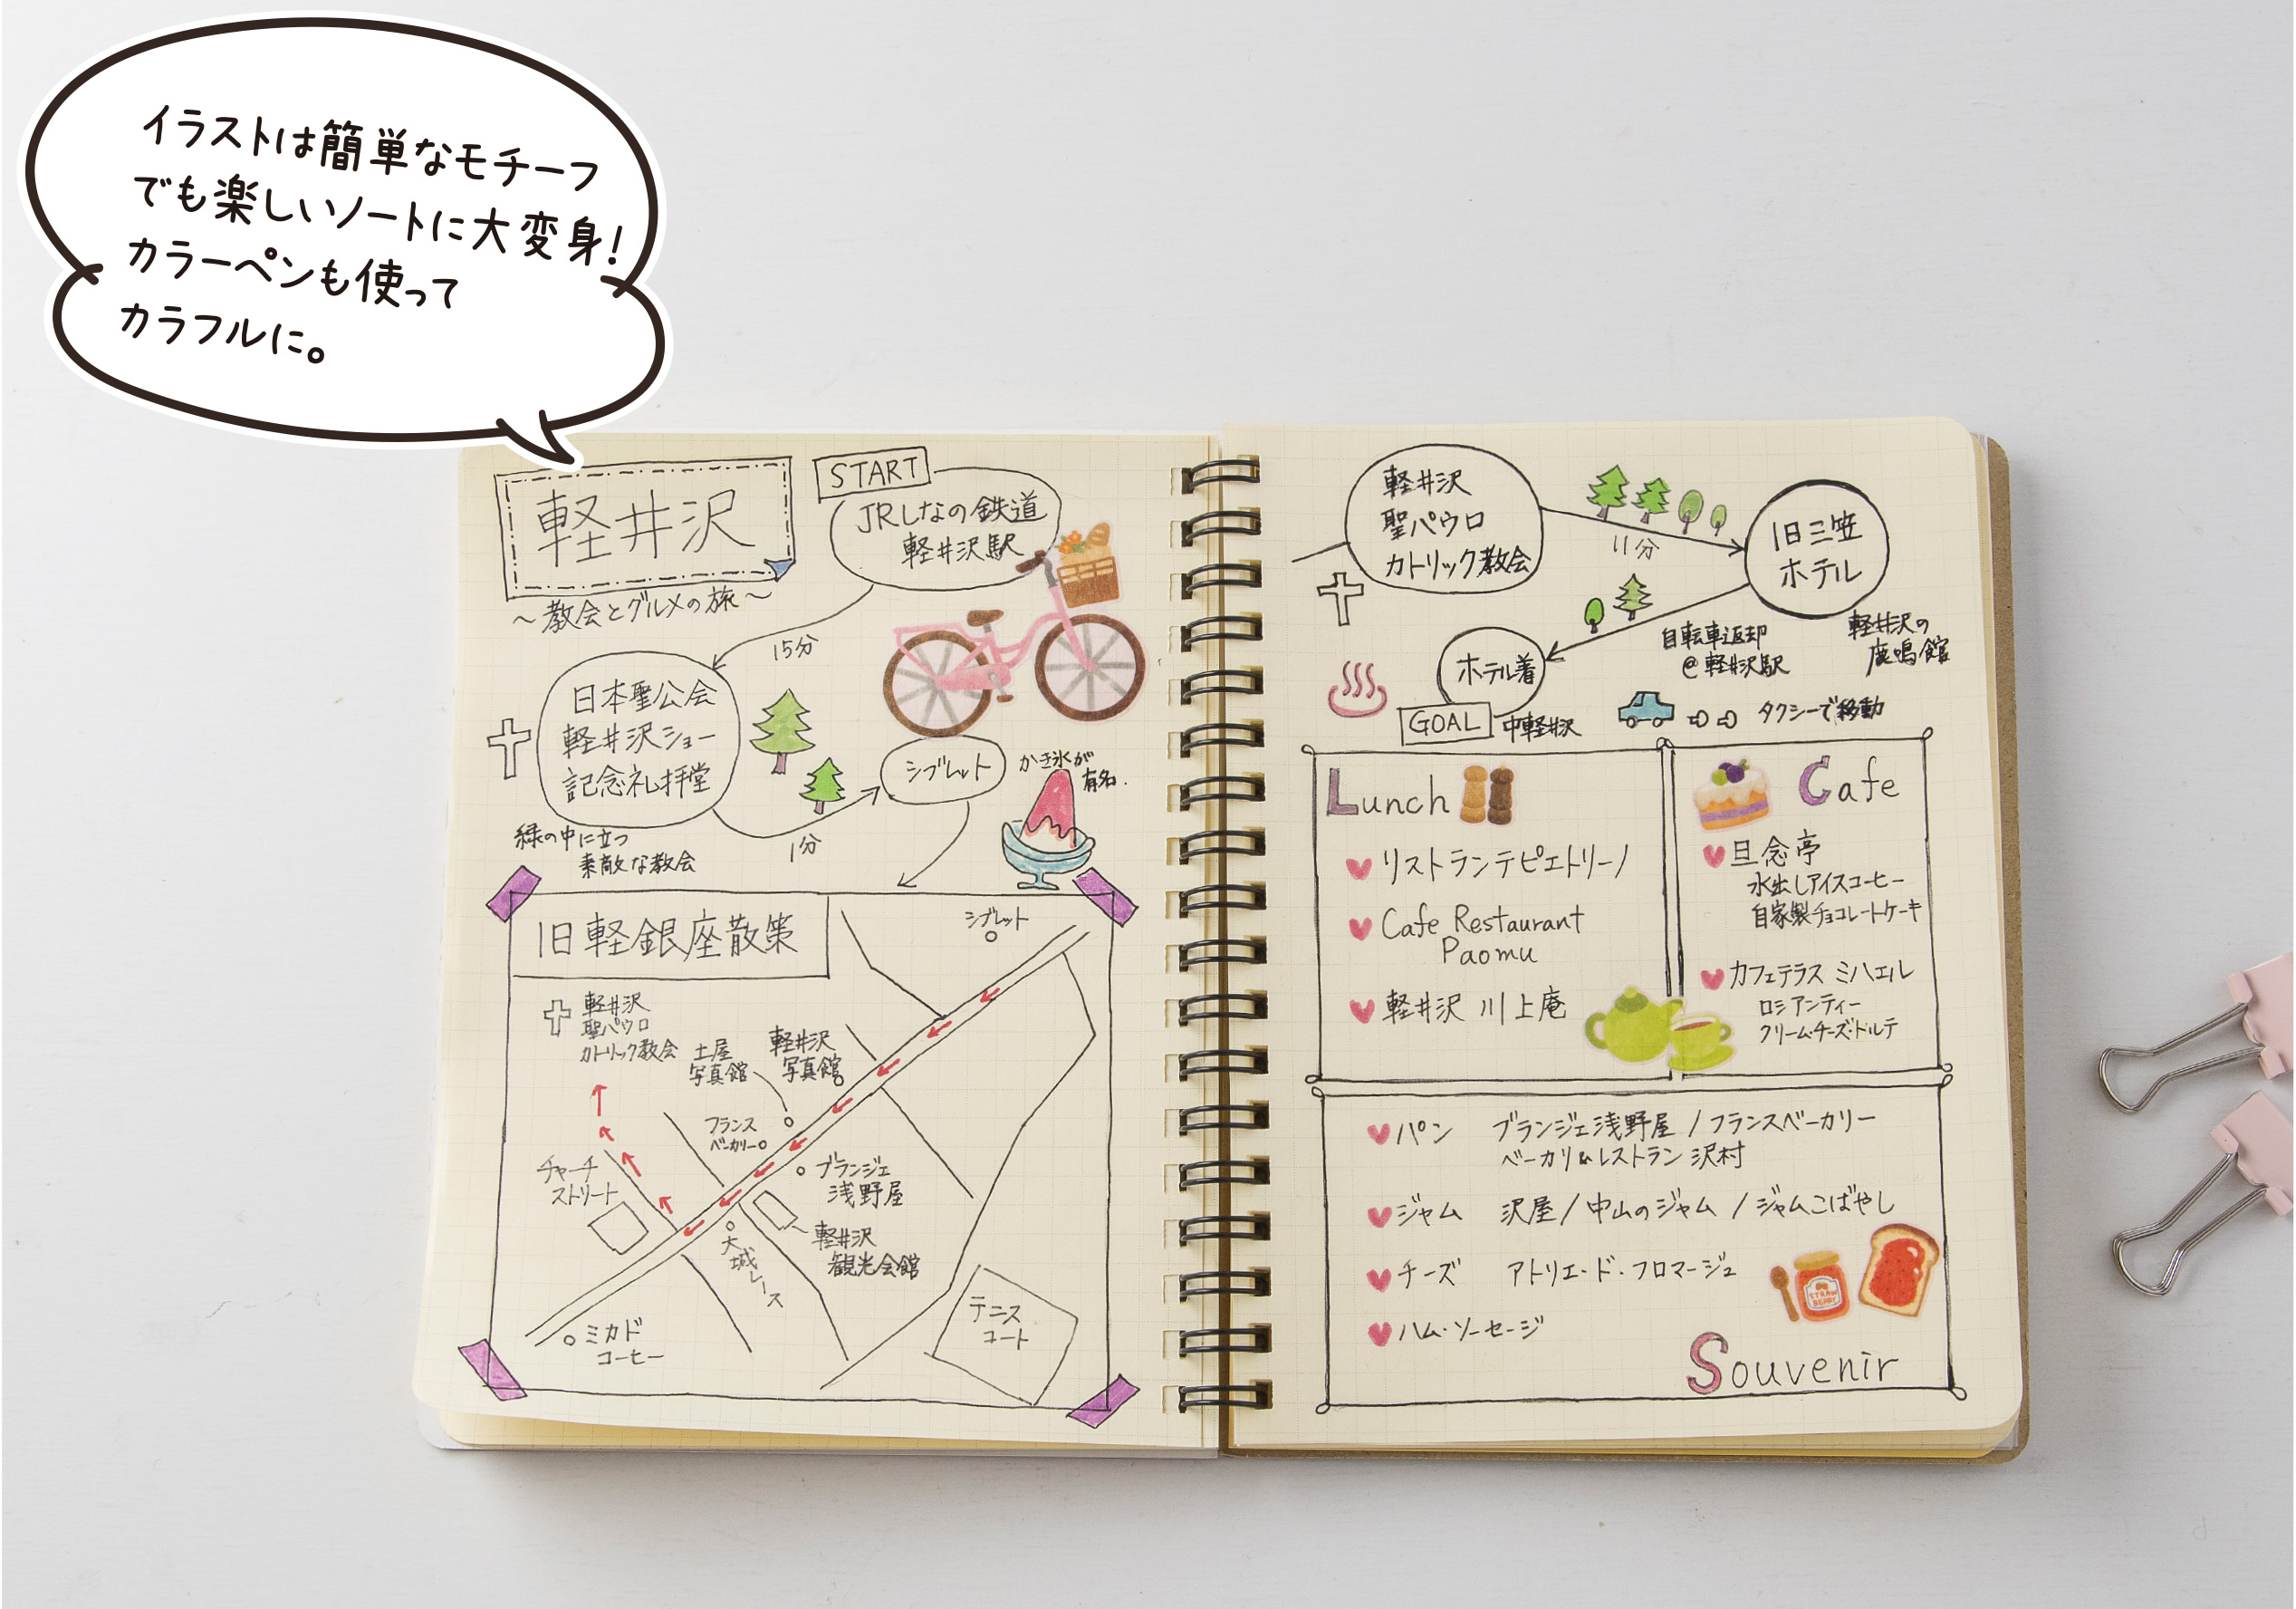 イラストは簡単なモチーフ
でも楽しいノートに大変身！
カラーペンも使って
カラフルに。
軽井沢
～教会とグルメの旅～
START
JRしなの鉄道
軽井沢駅
15分
日本聖公会
軽井沢ショー
記念礼拝堂
緑の中に立つ
素敵な教会
1分
シブレット
かき氷が
有名.
旧軽銀座散策
シブレット
軽井沢
聖パウロ
カトリック教会
土屋
写真館
軽井沢
写真館
フランス
ベーカリー
チャーチ
ストリート
ブランジェ
浅野屋
軽井沢
観光会館
大城レース
テニス
コート
ミカド
コーヒー
軽井沢
聖パウロ
カトリック教会
11分
旧三笠
ホテル
軽井沢の
鹿鳴館
自転車返却
@軽井沢駅
ホテル着
GOAL
中軽井沢
タクシーで移動
Lunch
リストランテピエトリーノ
Cafe Restaurant
Paomu
軽井沢 川上庵
Cafe
旦念亭
水出しアイスコーヒー
自家製チョコレートケーキ
カフェテラス ミハエル
ロシアンティー
クリーム・チーズ・トルテ
パン ブランジェ浅野屋 / フランスベーカリー
ベーカリー&レストラン 沢村
ジャム 沢屋 / 中山のジャム / ジャムこばやし
チーズ アトリエ・ド・フロマージュ
ハム・ソーセージ
STRAW
BERRY
Souvenir